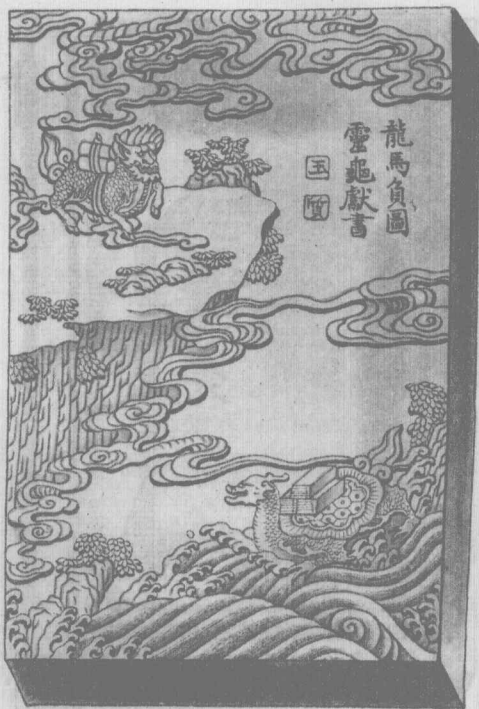 龍馬負圖
靈龜獻書
玉質